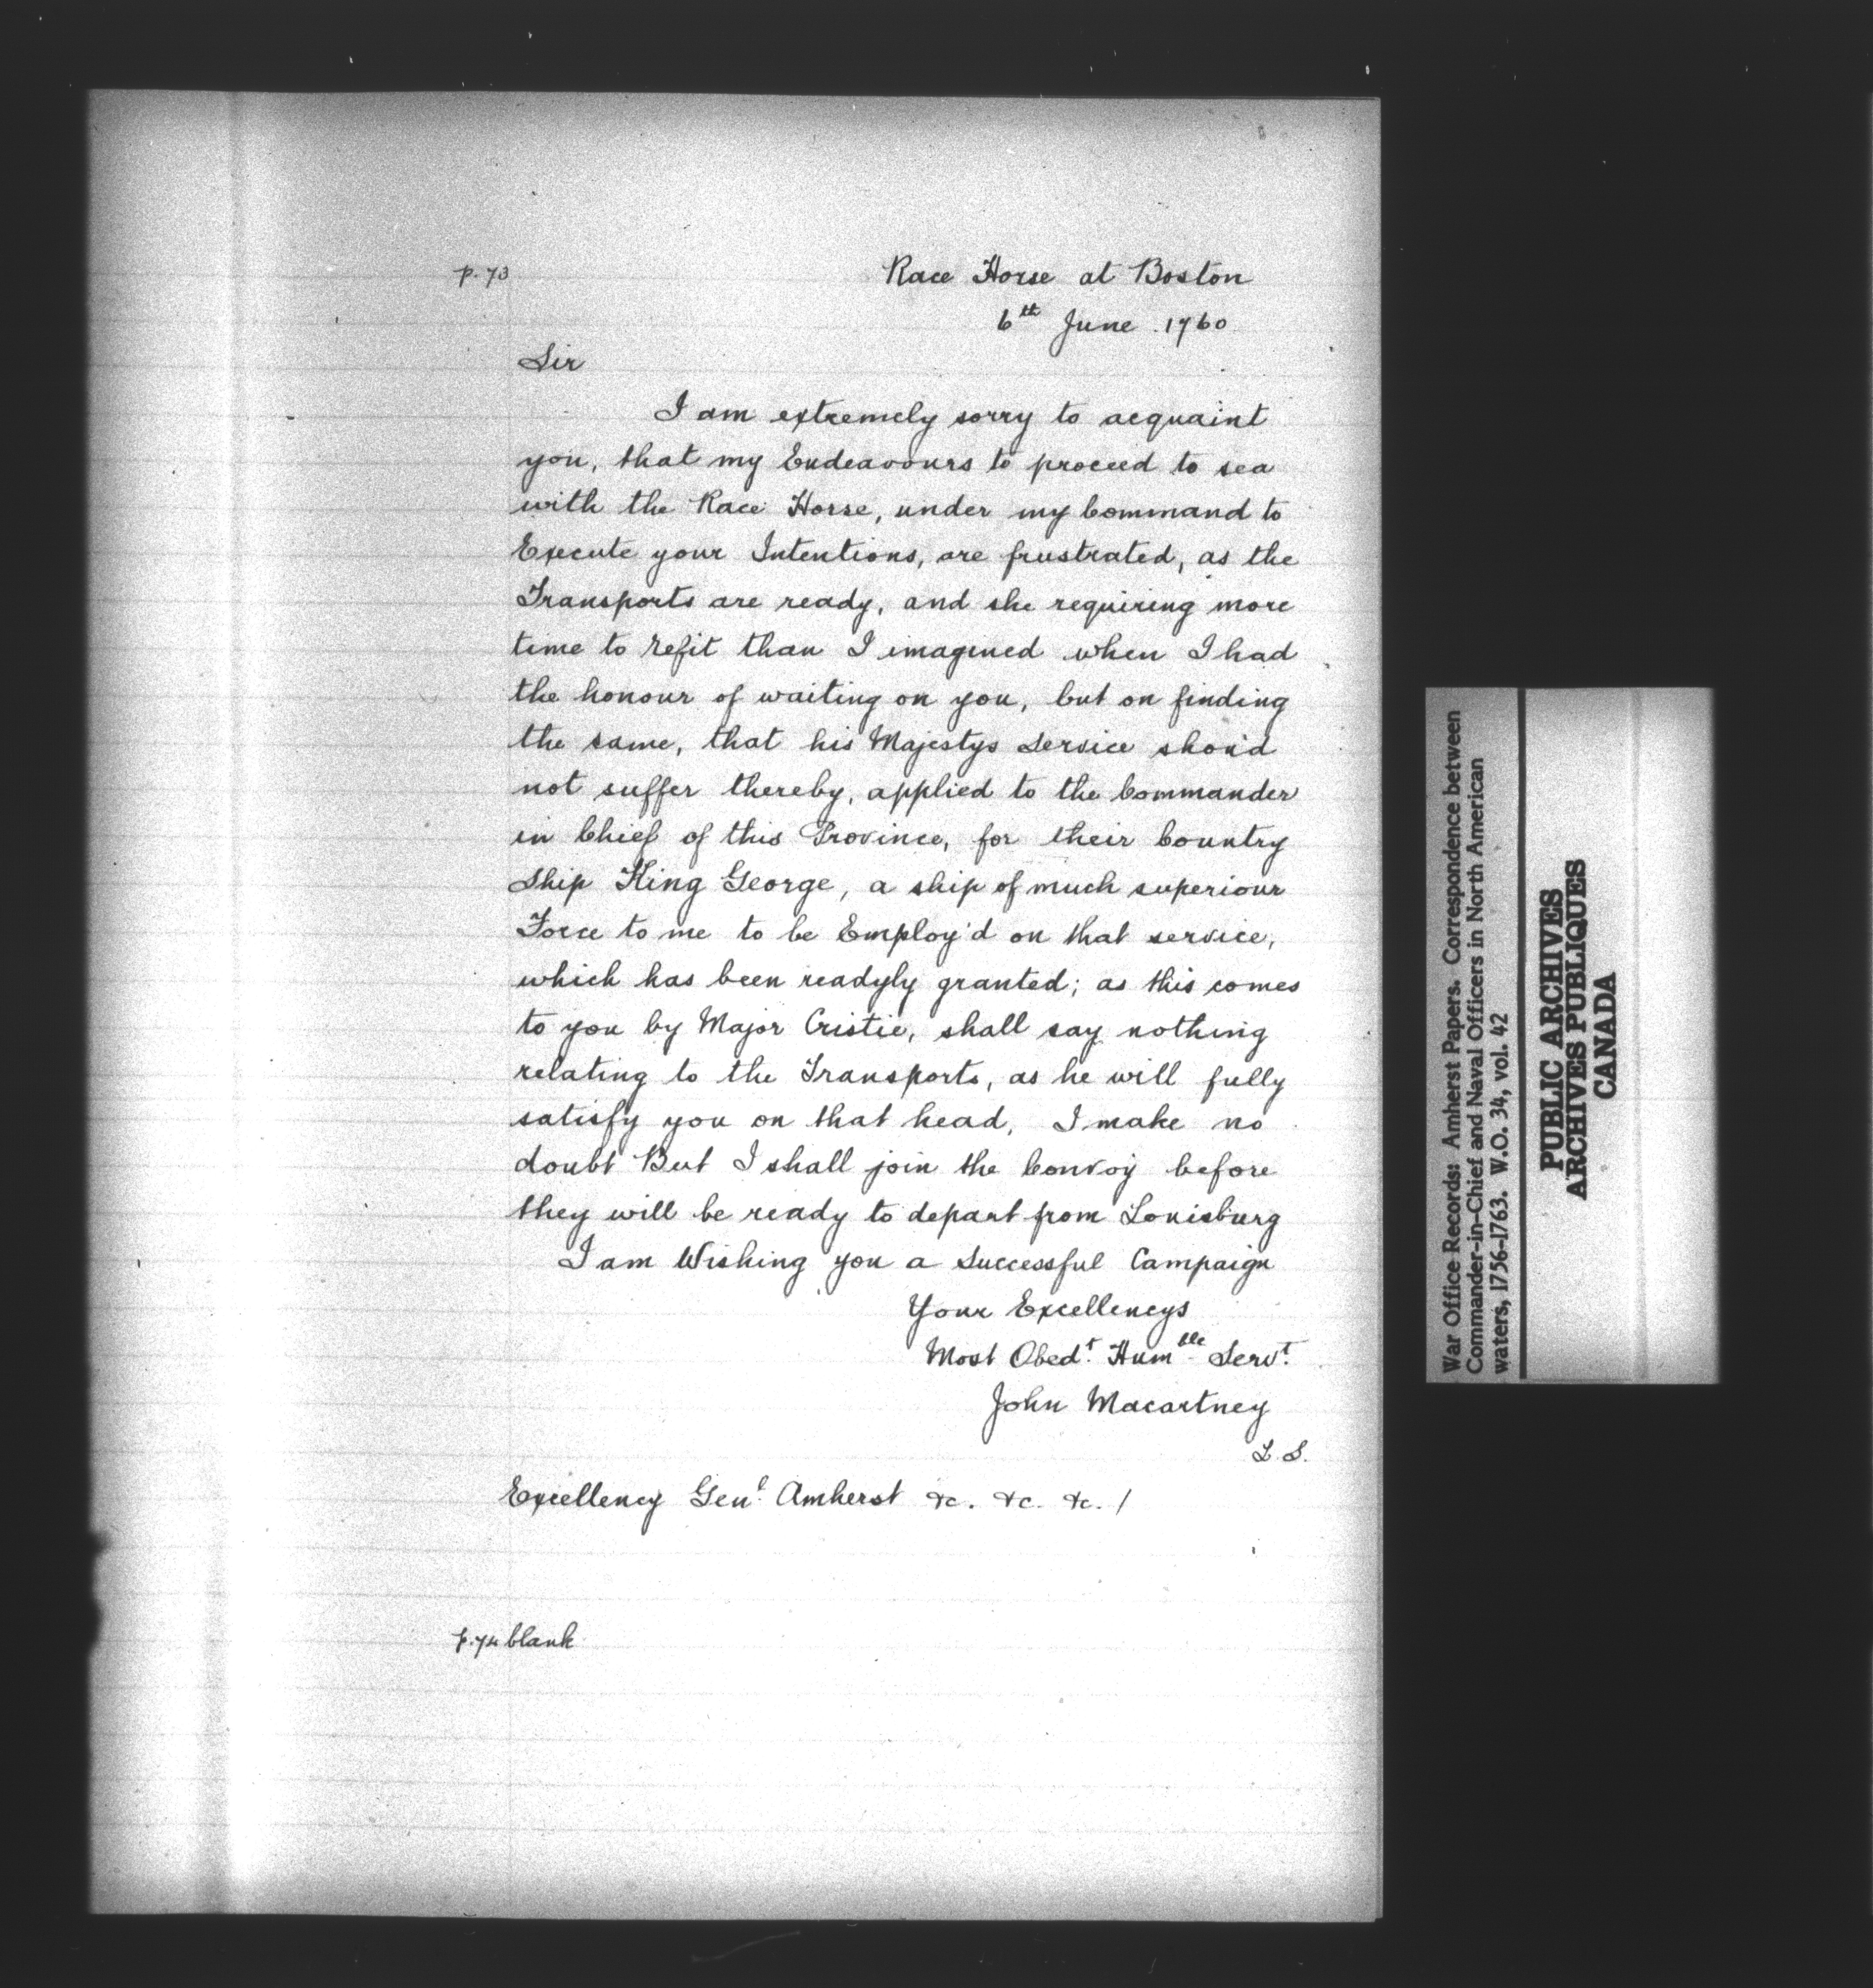 p. 73
Race Horse at Boston
6th June 1760
Sir
I am extremely sorry to acquaint
you, that my Endeavours to proceed to sea
with the Race Horse, under my Command to
Execute your Intentions, are frustrated, as the
Transports are ready, and she requiring more
time to refit than I imagined when I had
the honour of waiting on you, but on finding
the same, that his Majestys Service shou'd
not suffer thereby, applied to the Commander
in Chief of this Province, for their Country
Ship King George, a ship of much superiour
Force to me to be Employ'd on that service,
which has been readyly granted; as this comes
to you by Major Cristie, shall say nothing
relating to the Transports, as he will fully
satisfy you on that head, I make no
doubt But I shall join the Convoy before
they will be ready to depart from Louisburg
I am Wishing you a Successful Campaign
Your Excellencys
Most Obedt. Humble Servt.
John Macartney
L. S.
Excellency Genl. Amherst &c. &c. &c. /
p. 74 blank
War Office Records: Amherst Papers. Correspondence between
Commander-in-Chief and Naval Officers in North American
waters, 1756-1763. W.O. 34, vol. 42
PUBLIC ARCHIVES
ARCHIVES PUBLIQUES
CANADA